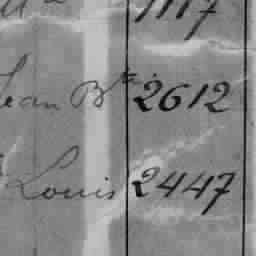 1117
Jean Bte 2612
Louis 2447